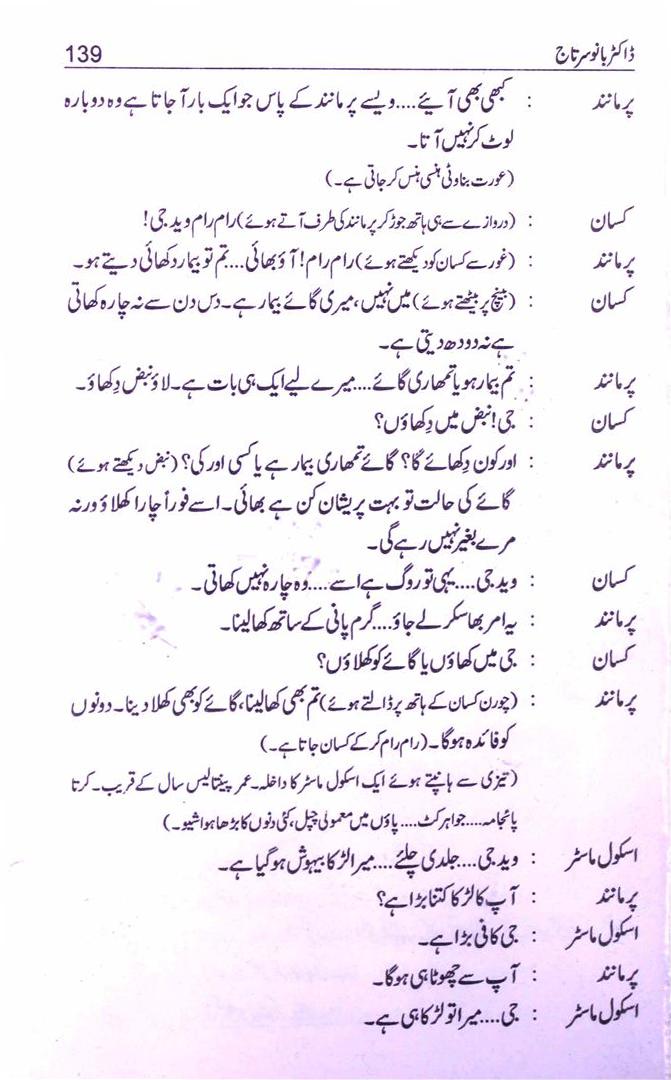 139 ڈاکٹر بانو سرتاج
پرمانند : کبھی بھی آیئے....ویسے پرمانند کے پاس جو ایک بار آجاتا ہے وہ دوبارہ
لوٹ کر نہیں آتا۔
(عورت بناوٹی ہنسی ہنس کر جاتی ہے۔)
کسان : (دروازے سے ہی ہاتھ جوڑ کر پرمانند کی طرف آتے ہوئے) رام رام وید جی!
پرمانند : (غور سے کسان کو دیکھتے ہوئے) رام رام! آؤ بھائی....تم تو بیمار دکھائی دیتے ہو۔
کسان : (بینچ پر بیٹھتے ہوئے) میں نہیں، میری گائے بیمار ہے۔ دس دن سے نہ چارہ کھاتی
ہے نہ دودھ دیتی ہے۔
پرمانند : تم بیمار ہو یا تمھاری گائے....میرے لیے ایک ہی بات ہے۔ لاؤ نبض دِکھاؤ۔
کسان : جی! نبض میں دِکھاؤں؟
پرمانند : اور کون دِکھائے گا؟ گائے تمھاری بیمار ہے یا کسی اور کی؟ (نبض دیکھتے ہوئے)
گائے کی حالت تو بہت پریشان کن ہے بھائی۔ اسے فوراً چارا کھلاؤ ورنہ
مرے بغیر نہیں رہے گی۔
کسان : وید جی....یہی تو روگ ہے اسے....وہ چارہ نہیں کھاتی۔
پرمانند : یہ امر بھاسکر لے جاؤ....گرم پانی کے ساتھ کھا لینا۔
کسان : جی میں کھاؤں یا گائے کو کھلاؤں؟
پرمانند : (چورن کسان کے ہاتھ پر ڈالتے ہوئے) تم بھی کھا لینا، گائے کو بھی کھلا دینا۔ دونوں
کو فائدہ ہوگا۔ (رام رام کر کے کسان جاتا ہے۔)
(تیزی سے ہانپتے ہوئے ایک اسکول ماسٹر کا داخلہ۔ عمر پینتالیس سال کے قریب۔ کرتا
پائجامہ....جواہر کٹ....پاؤں میں معمولی چپل، کئی دنوں کا بڑھا ہوا شیو۔)
اسکول ماسٹر : وید جی....جلدی چلئے....میرا لڑکا بیہوش ہو گیا ہے۔
پرمانند : آپ کا لڑکا کتنا بڑا ہے؟
اسکول ماسٹر : جی کافی بڑا ہے۔
پرمانند : آپ سے چھوٹا ہی ہوگا۔
اسکول ماسٹر : جی....میرا تو لڑکا ہی ہے۔